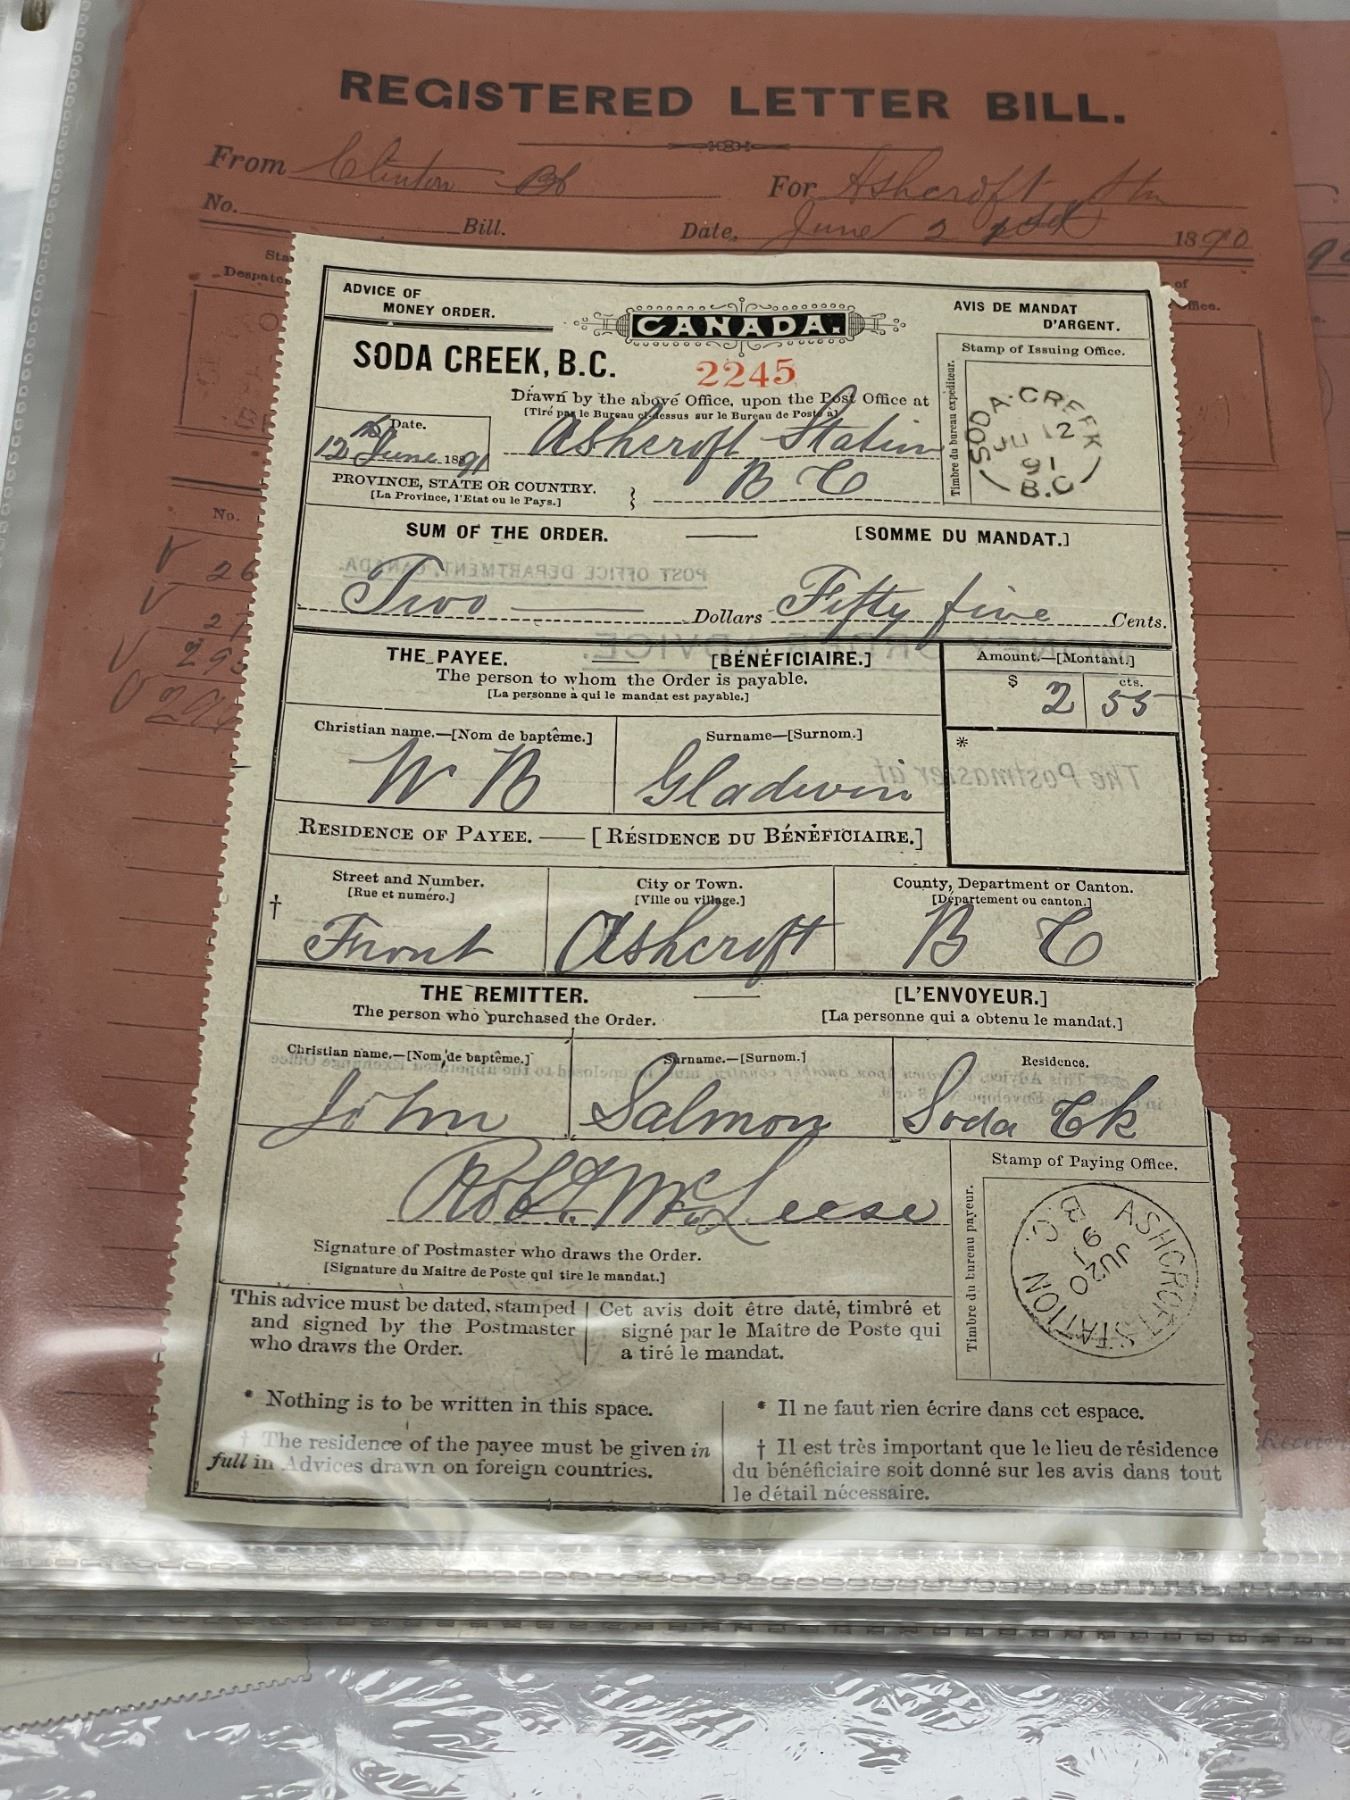 REGISTERED LETTER BILL.
From Clinton BC For Ashcroft Stn
No. Bill. Date, June 2 1890
ADVICE OF
MONEY ORDER.
CANADA.
AVIS DE MANDAT
D'ARGENT.
SODA CREEK, B.C.
2245
Stamp of Issuing Office.
Timbre du bureau expéditeur.
SODA-CREEK
JU 12
91
B.C
Drawn by the above Office, upon the Post Office at
[Tiré par le Bureau ci-dessus sur le Bureau de Poste à]
Date.
12th June 1891
Ashcroft Station
B C
PROVINCE, STATE OR COUNTRY.
[La Province, l'Etat ou le Pays.]
SUM OF THE ORDER. [SOMME DU MANDAT.]
POST OFFICE DEPARTMENT, CANADA.
Two Dollars Fifty five Cents.
MONEY ORDER ADVICE.
THE PAYEE. [BÉNÉFICIAIRE.]
The person to whom the Order is payable.
[La personne à qui le mandat est payable.]
Amount.—[Montant.]
$ cts.
2 55
Christian name.—[Nom de baptême.] Surname—[Surnom.]
W B Gladwin
*
The Postmaster at
RESIDENCE OF PAYEE. — [RÉSIDENCE DU BÉNÉFICIAIRE.]
Street and Number. City or Town. County, Department or Canton.
[Rue et numéro.] [Ville ou village.] [Département ou canton.]
† Front Ashcroft B C
THE REMITTER. [L'ENVOYEUR.]
The person who purchased the Order. [La personne qui a obtenu le mandat.]
Christian name.—[Nom de baptême.] Surname.—[Surnom.] Residence.
John Salmon Soda Ck
Robt. McLeese
Signature of Postmaster who draws the Order.
[Signature du Maître de Poste qui tire le mandat.]
Stamp of Paying Office.
Timbre du bureau payeur.
ASHCROFT STATION
JU 20
91
B.C.
This advice must be dated, stamped
and signed by the Postmaster
who draws the Order.
Cet avis doit être daté, timbré et
signé par le Maître de Poste qui
a tiré le mandat.
* Nothing is to be written in this space.
† The residence of the payee must be given in
full in Advices drawn on foreign countries.
* Il ne faut rien écrire dans cet espace.
† Il est très important que le lieu de résidence
du bénéficiaire soit donné sur les avis dans tout
le détail nécessaire.
No.
26